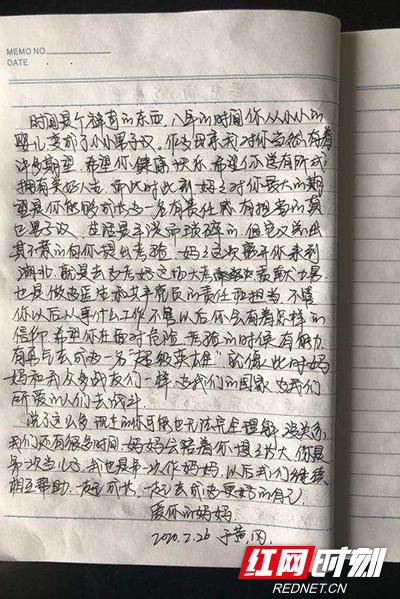 MEMO NO.
DATE
时间是个神奇的东西，八年的时间你从小小的
婴儿变成了小小男子汉，作为母亲我对你当然有着
许多期望，希望你健康、快乐，希望你学有所成
拥有美好人生，而此时此刻妈妈对你最大的期
望是你能够成为一名有责任感、有担当的真
正男子汉。生活是平淡而琐碎的，但它又总出
其不意的向你提出考验，妈妈这次离开你来到
湖北，就是去为打好这场大考贡献力量，
也是做为医生和共产党员的责任和担当，不管
你以后从事什么工作，不管以后你会有着怎样的
信仰，希望你在面对危险、考验的时候，有能力、
有勇气去成为一名“超级英雄”，就像此时妈
妈和我众多战友们一样，为我们的国家，为我们
所爱的人们去战斗。
说了这么多，现在的你可能也无法完全理解，没关系，
我们还有很多时间，妈妈会陪着你慢慢长大，你是
第一次当儿子，我也是第一次作妈妈，以后我们继续
相互帮助，一起成长，一起去成为更好的自己。
爱你的妈妈
2020.2.26 于黄冈
红网时刻
REDNET.CN